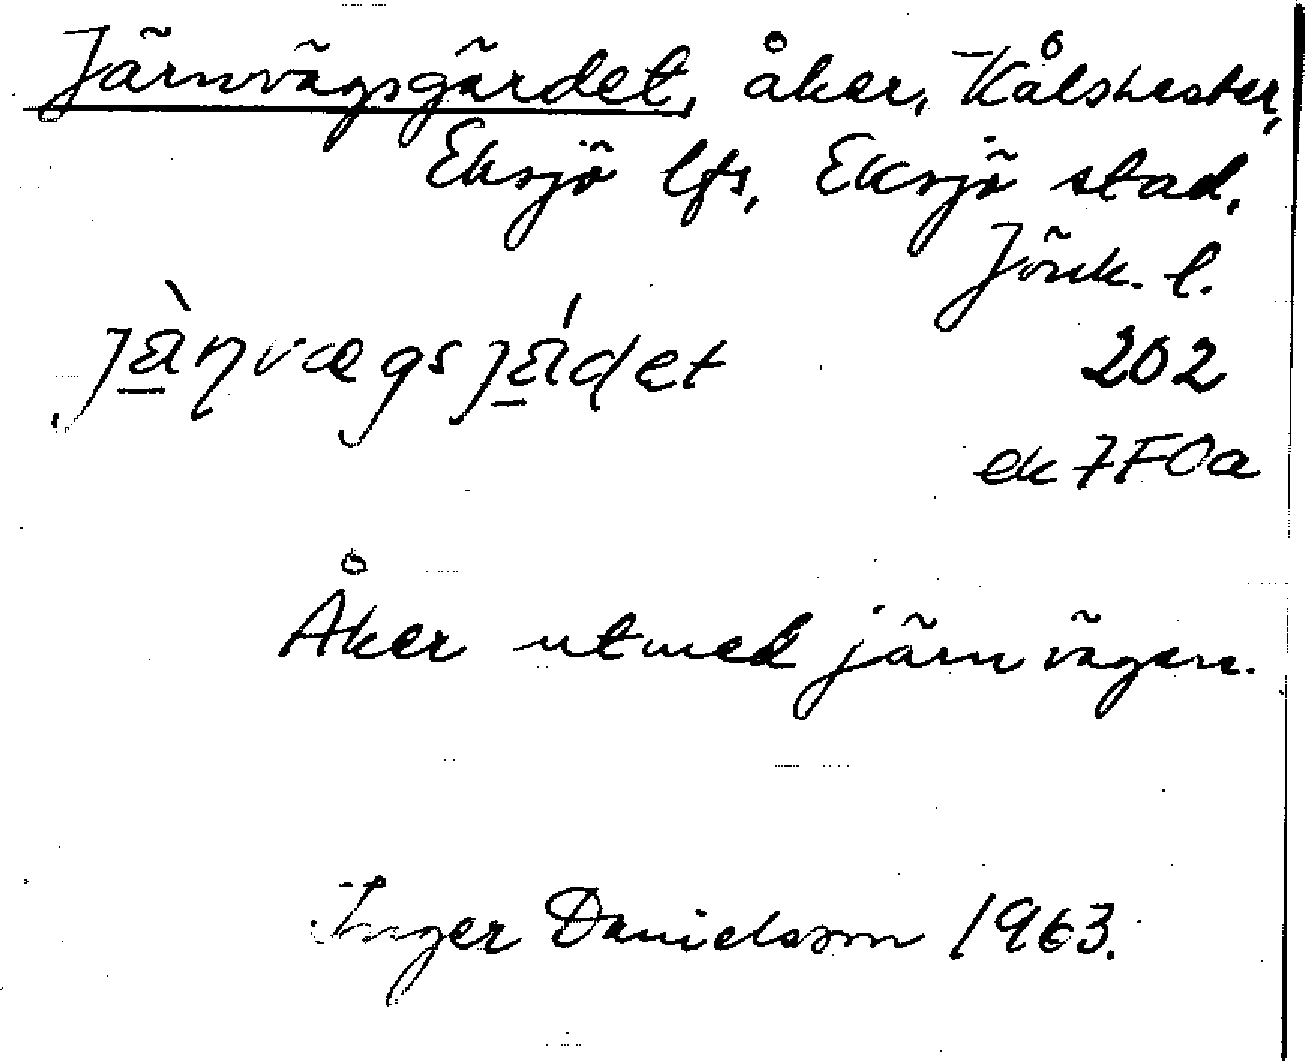 Järnvägsgärdet, åker, Kålshester,
Eksjö lfs, Eksjö stad,
Jönk. l.
jä̀ɳvægsjä́ɖet 202
ek 7F0a
Åker utmed järnvägen.
Inger Danielsson 1963.